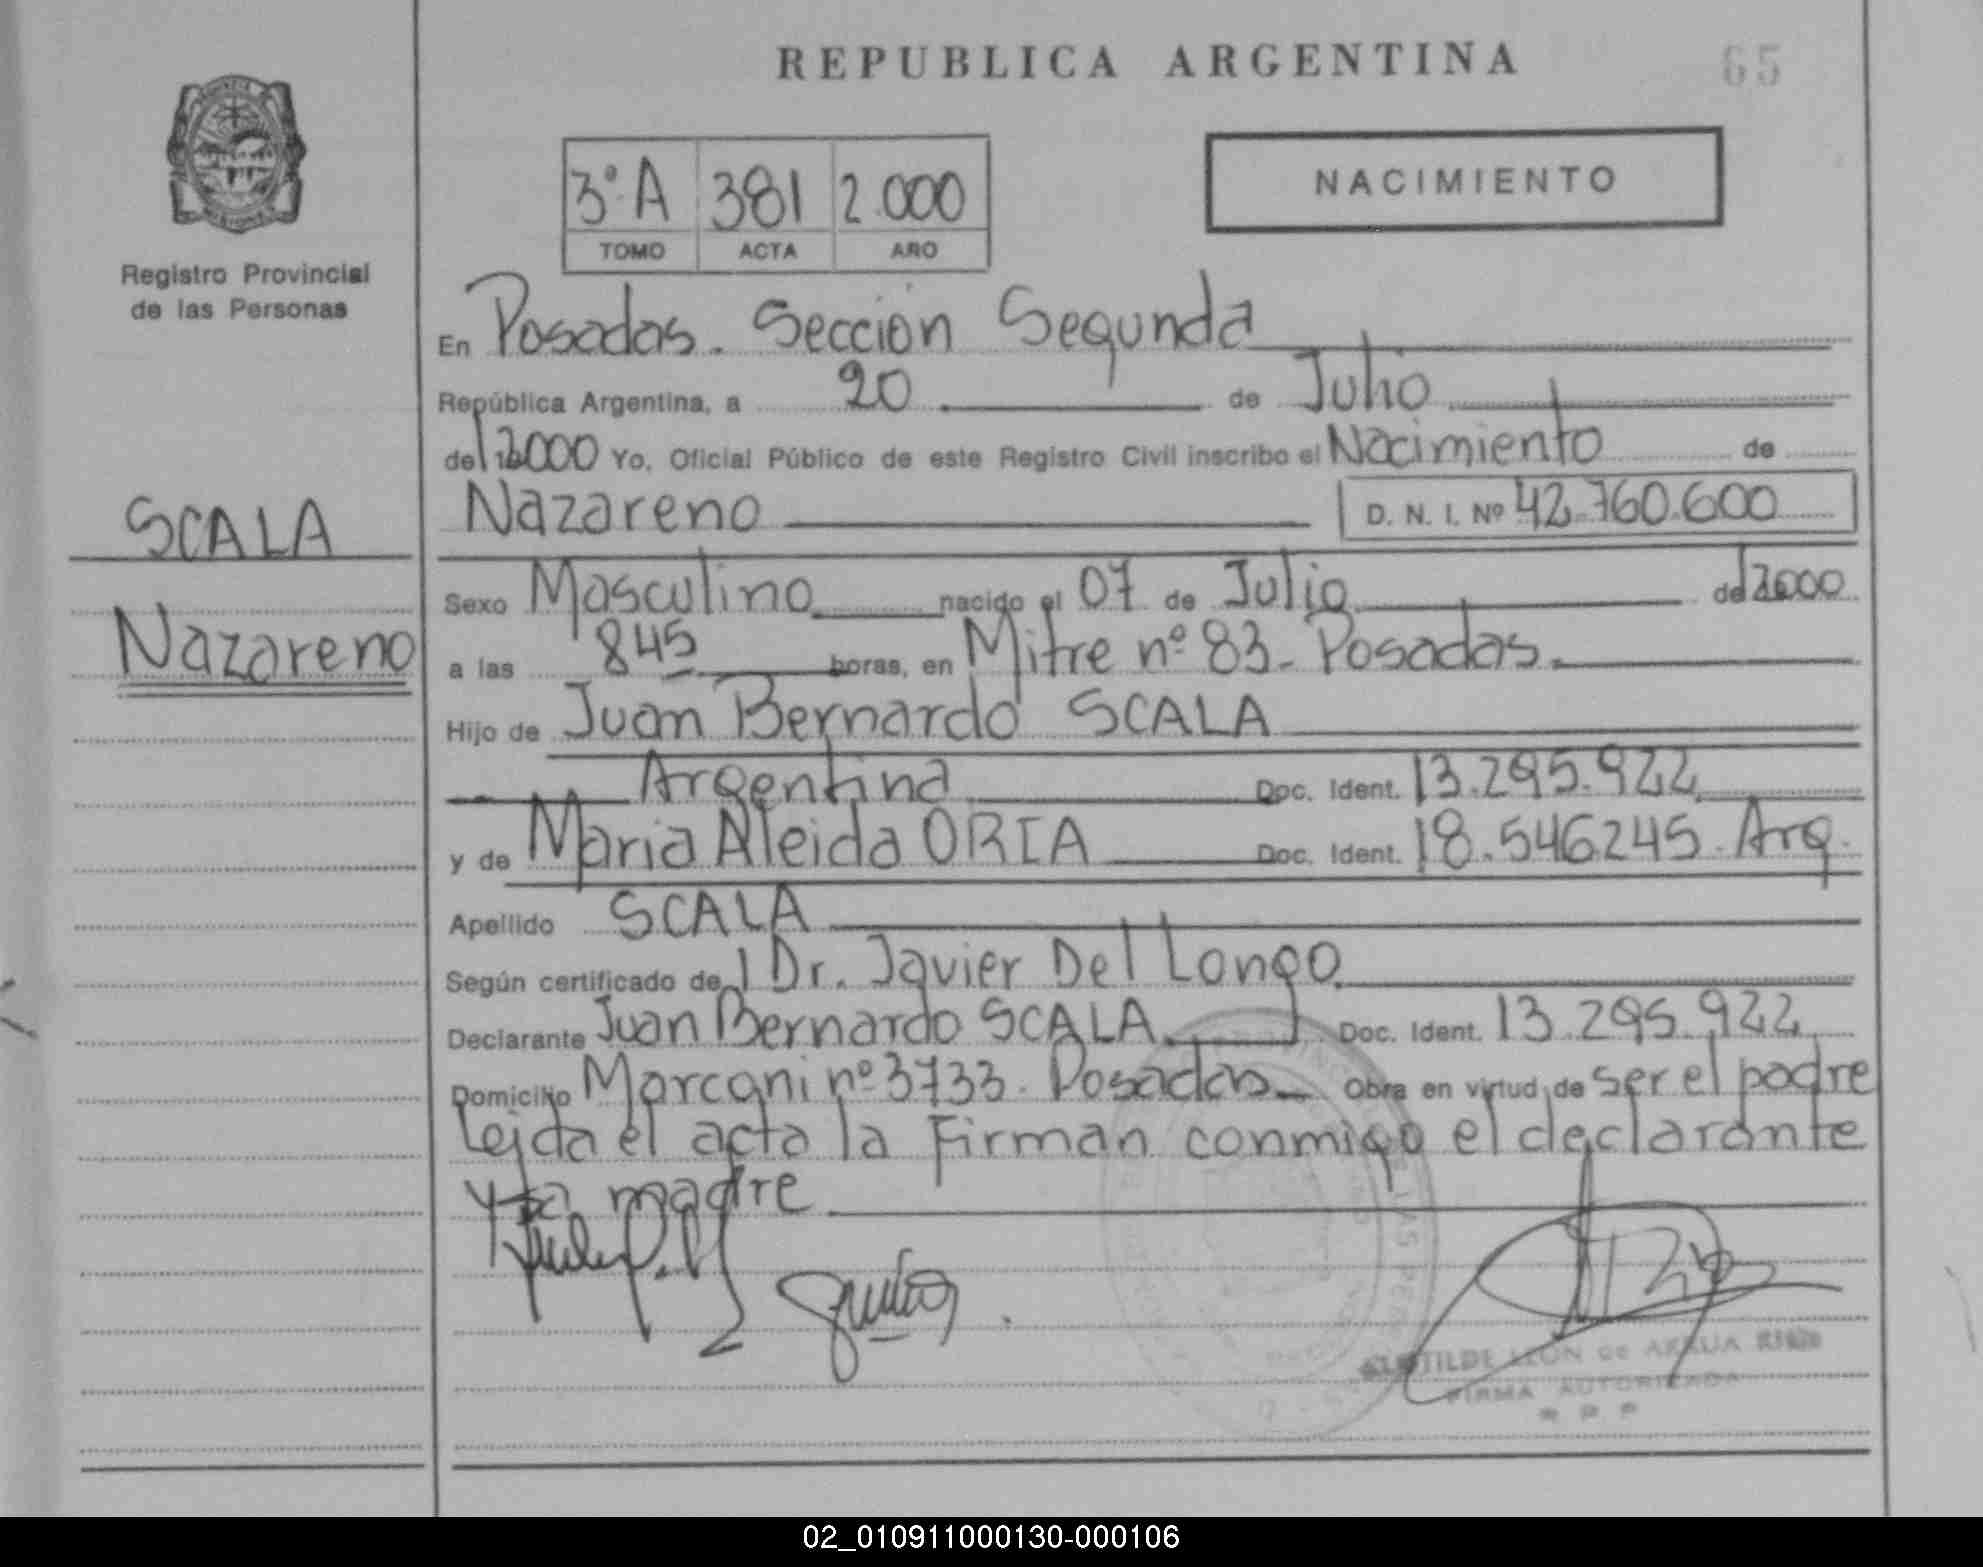 REPUBLICA ARGENTINA
65
3º A 381 2.000
TOMO ACTA AÑO
NACIMIENTO
Registro Provincial
de las Personas
En Posadas. Sección Segunda
República Argentina, a 20 de Julio
del 2000 Yo, Oficial Público de este Registro Civil inscribo el Nacimiento de
SCALA
Nazareno D. N. I. Nº 42.760.600
Nazareno
Sexo Masculino nacido el 07 de Julio del 2000
a las 845 horas, en Mitre nº 83 - Posadas.
Hijo de Juan Bernardo SCALA
Argentina Doc. Ident. 13.295.922
y de Maria Aleida ORIA Doc. Ident. 18.546245. Arg.
Apellido SCALA
Según certificado del Dr. Javier Del Longo
Declarante Juan Bernardo SCALA Doc. Ident. 13.295.922
Domicilio Marconi nº 3733. Posadas Obra en virtud de ser el padre
Leida el acta la Firman conmigo el declarante
y la madre
LEON de
FIRMA AUTORIZADA
02_010911000130-000106